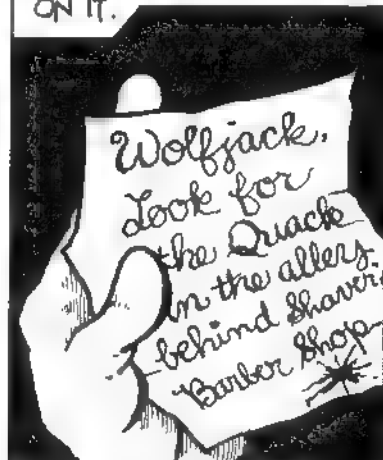 ON IT.
Wolfjack,
Look for
the Quack
in the alley
behind Shaver
Barber Shop